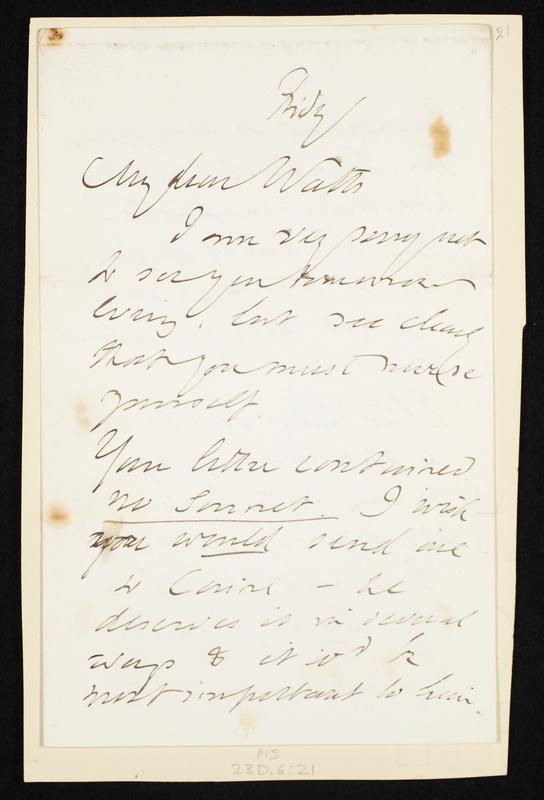 21
Fridy
My dear Watts
I am very sorry not
to see you tomorrow
Evening, but see clearly
that you must nurse
yourself.
Your letter contained
no sonnet. I wish
you would send one
to Caine – he
deserves it in several
ways & it wd be
most important to him.
MS
23D.6:21